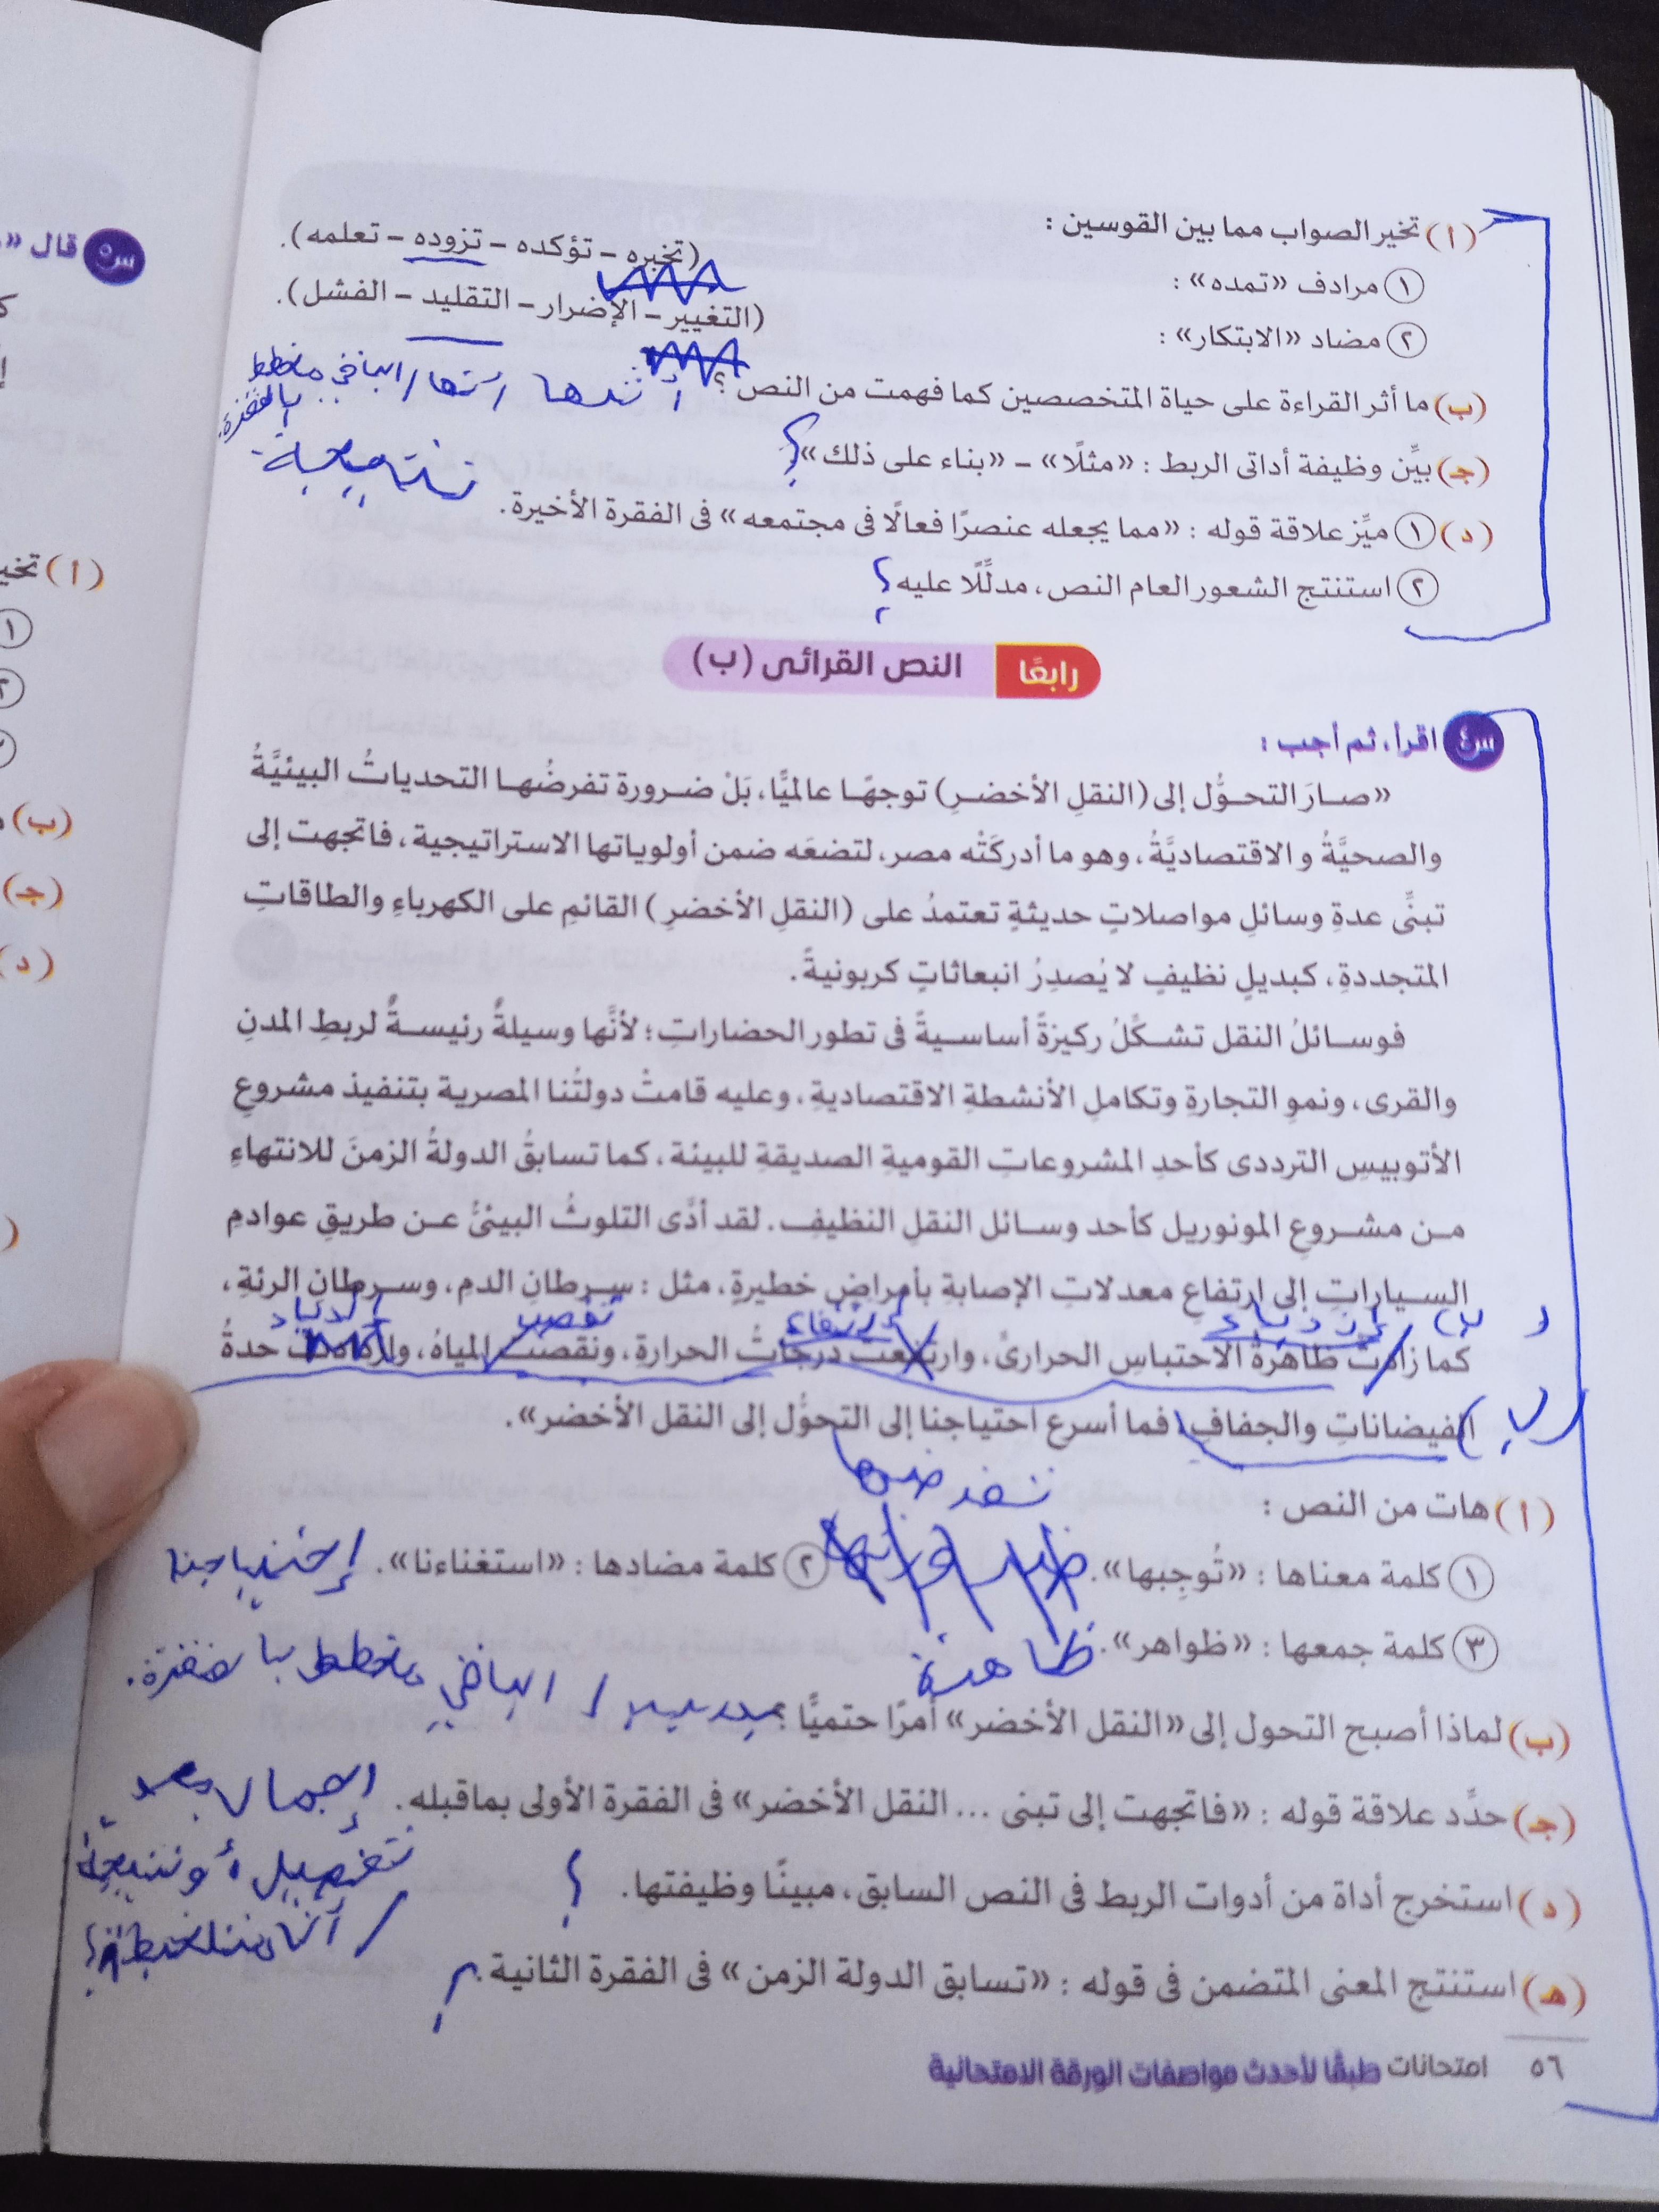 (أ) تخير الصواب مما بين القوسين :
① مرادف «تمده» : (تخبره – تؤكده – تزوده – تعلمه).
② مضاد «الابتكار» : (التغيير – الإضرار – التقليد – الفشل).
(ب) ما أثر القراءة على حياة المتخصصين كما فهمت من النص ؟ الباقي مخطط
بالفقرة.
(جـ) بيِّن وظيفة أداتى الربط : «مثلًا» – «بناء على ذلك» ؟
(د) ① ميِّز علاقة قوله : «مما يجعله عنصرًا فعالًا فى مجتمعه» فى الفقرة الأخيرة. نتيجة
② استنتج الشعور العام النص، مدلِّلًا عليه ؟
رابعًا النص القرائى (ب)
س٤ اقرأ، ثم أجب :
«صارَ التحوُّل إلى (النقلِ الأخضرِ) توجهًا عالميًّا، بَلْ ضرورة تفرضُها التحدياتُ البيئيَّةُ
والصحيَّةُ والاقتصاديَّةُ، وهو ما أدركَتْه مصر، لتضعَه ضمن أولوياتها الاستراتيجية، فاتجهت إلى
تبنِّى عدةِ وسائلِ مواصلاتٍ حديثةٍ تعتمدُ على (النقلِ الأخضرِ) القائمِ على الكهرباءِ والطاقاتِ
المتجددةِ، كبديلٍ نظيفٍ لا يُصدِرُ انبعاثاتٍ كربونيةً.
فوسائلُ النقل تشكِّلُ ركيزةً أساسيةً فى تطور الحضاراتِ؛ لأنَّها وسيلةٌ رئيسةٌ لربطِ المدنِ
والقرى، ونموِ التجارةِ وتكاملِ الأنشطةِ الاقتصاديةِ، وعليه قامتْ دولتُنا المصرية بتنفيذ مشروعِ
الأتوبيسِ الترددى كأحدِ المشروعاتِ القوميةِ الصديقةِ للبيئة، كما تسابقُ الدولةُ الزمنَ للانتهاءِ
من مشروعِ المونوريل كأحد وسائل النقلِ النظيفِ. لقد أدَّى التلوثُ البيئىُّ عن طريقِ عوادمِ
السياراتِ إلى ارتفاعِ معدلاتِ الإصابةِ بأمراضٍ خطيرةٍ، مثل : سرطانِ الدمِ، وسرطانِ الرئةِ،
ازدياد ارتفاع نقص
كما زادتْ ظاهرةُ الاحتباسِ الحرارىِّ، وارتفعت درجاتُ الحرارةِ، ونقصت المياهُ، وازدادت حدةُ
الفيضاناتِ والجفافِ، فما أسرع احتياجنا إلى التحوُّل إلى النقل الأخضر».
(أ) هات من النص : تفرضها
① كلمة معناها : «تُوجِبها». ② كلمة مضادها : «استغناءنا». إحتياجنا
③ كلمة جمعها : «ظواهر». ظاهرة
(ب) لماذا أصبح التحول إلى «النقل الأخضر» أمرًا حتميًّا ؟ بسبب / الباقي مخطط بالفقرة.
(جـ) حدِّد علاقة قوله : «فاتجهت إلى تبنى ... النقل الأخضر» فى الفقرة الأولى بماقبله. إجمال بعد
تفصيل أو نتيجة
(د) استخرج أداة من أدوات الربط فى النص السابق، مبينًا وظيفتها. ؟
/ أنا متلخبطة؟
(هـ) استنتج المعنى المتضمن فى قوله : «تسابق الدولة الزمن» فى الفقرة الثانية. ؟
٥٦ امتحانات طبقًا لأحدث مواصفات الورقة الامتحانية
س٥ قال «
(أ) تخي
①
②
(ب)
(جـ)
(د)